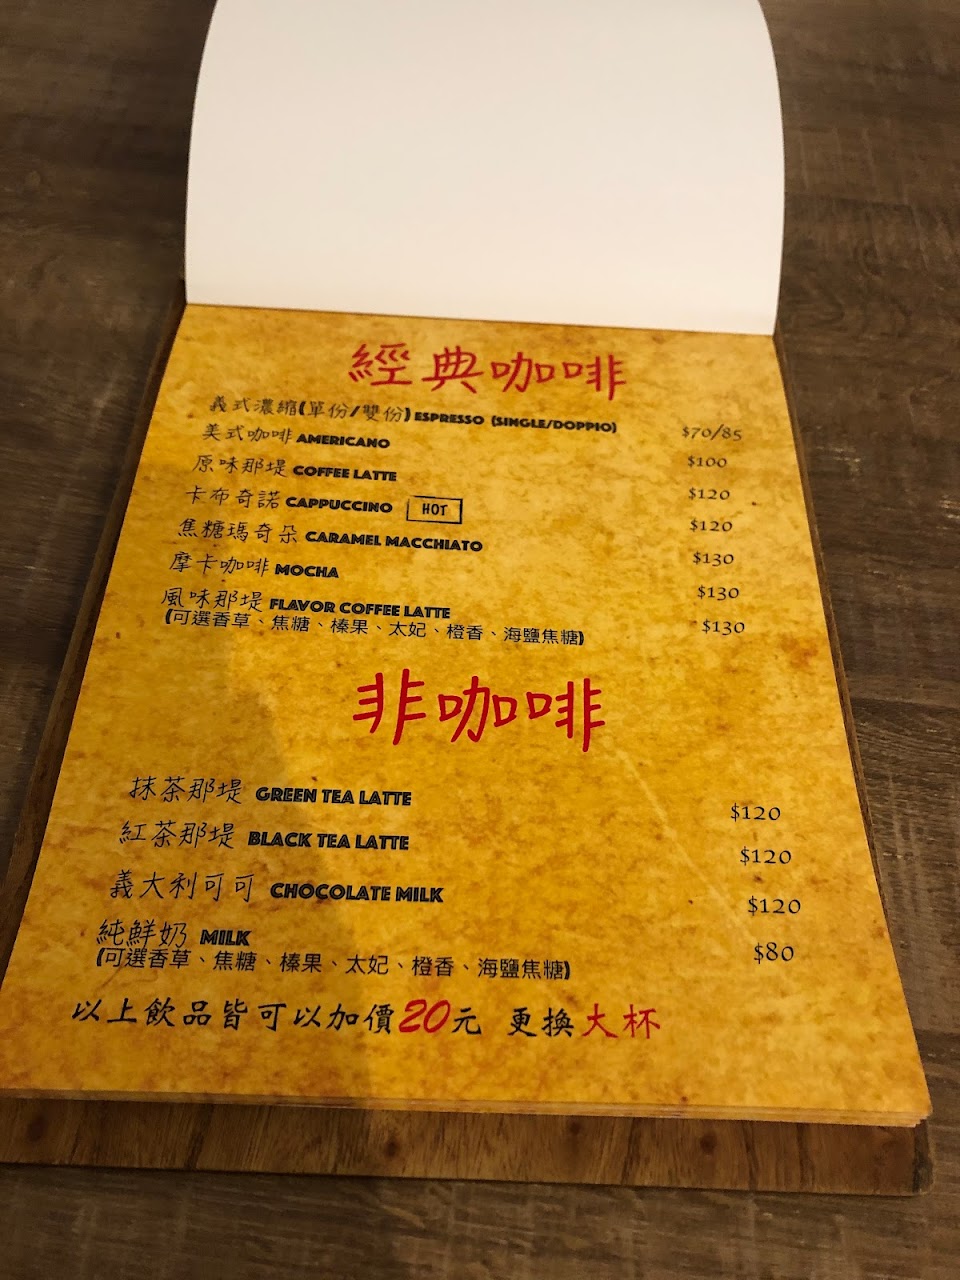 經典咖啡
義式濃縮(單份/雙份) ESPRESSO (SINGLE/DOPPIO) $70/85
美式咖啡 AMERICANO $100
原味那堤 COFFEE LATTE $120
卡布奇諾 CAPPUCCINO HOT $120
焦糖瑪奇朵 CARAMEL MACCHIATO $130
摩卡咖啡 MOCHA $130
風味那堤 FLAVOR COFFEE LATTE $130
(可選香草、焦糖、榛果、太妃、橙香、海鹽焦糖)
非咖啡
抹茶那堤 GREEN TEA LATTE $120
紅茶那堤 BLACK TEA LATTE $120
義大利可可 CHOCOLATE MILK $120
純鮮奶 MILK $80
(可選香草、焦糖、榛果、太妃、橙香、海鹽焦糖)
以上飲品皆可以加價20元 更換大杯